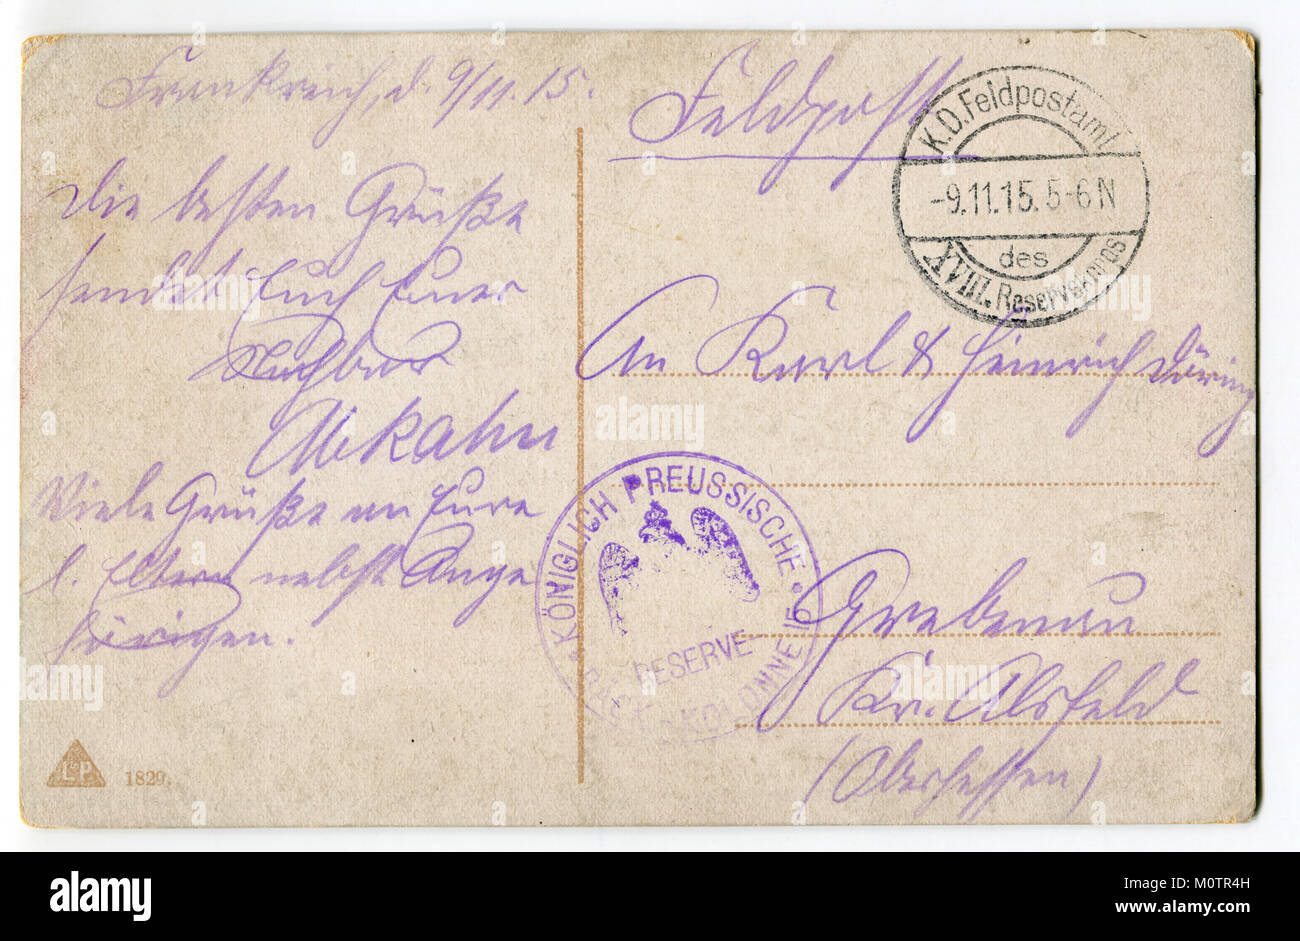 Frankreich, d. 9/11.15.
Die besten Grüße
sendet Euch Euer
Nachbar
Viele Grüße an Eure
l. Eltern nebst Ange
hörigen.
L&P 1829.
Feldpost
K.D. Feldpostamt
-9.11.15. 5-6 N
des
XVIII. Reservekorps
An Karl & Heinrich Döring
KÖNIGLICH PREUSSISCHE
RESERVE
KOLONNE
Grebenau
Kr. Alsfeld
(Oberhessen)
alamy
alamy
Image ID: M0TR4H
www.alamy.com